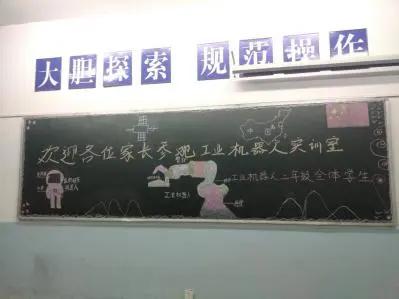 大胆探索 规范操作
欢迎各位家长参观工业机器人实训室
工业机器人二年级全体学生
工业机器人